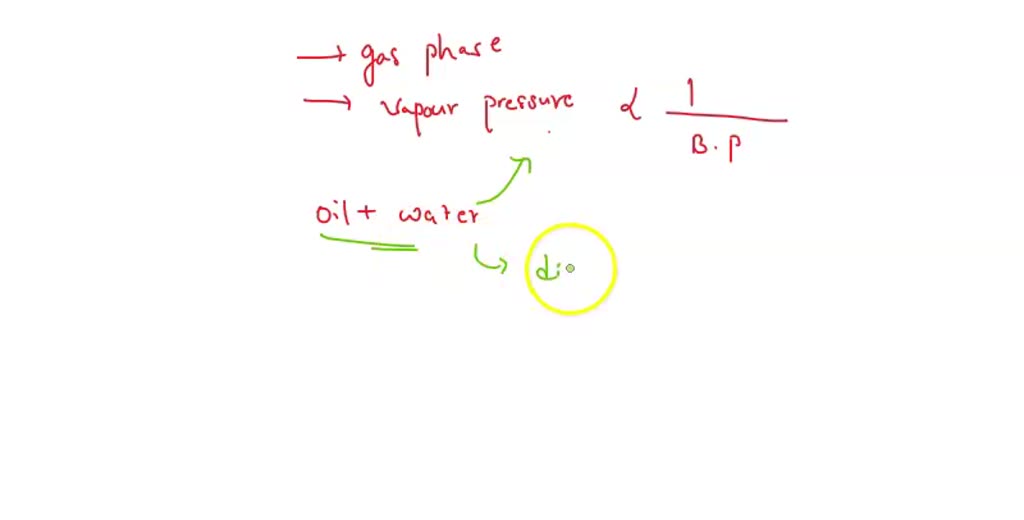 → gas phase
→ vapour pressure ∝ 1 / B.P
oil + water
↳ di